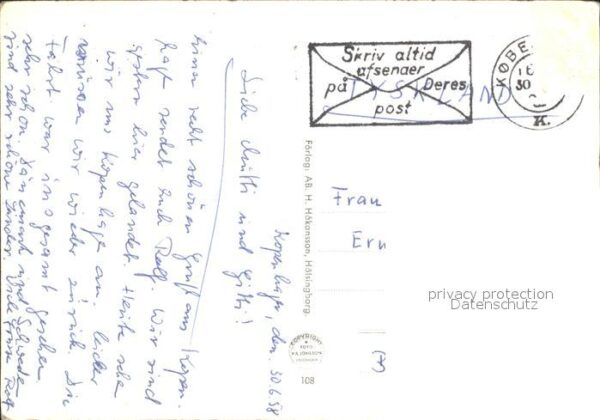 Kopenhagen, den 30.6.58
Liebe Mutti und Gitti!
Einen recht schönen Gruß aus Kopen
hagen sendet Euch Rolf. Wir sind
gestern hier gelandet. Heute sehen
wir uns Kopenhagen an. Leider
müssen wir wieder zurück. Die
Fahrt war insgesamt gesehen
sehr schön. Dänemark und Schweden
sind sehr schöne Länder. Viele Grüße Rolf
Skriv altid
afsenaer
på Deres
post
KØBE
30
K.
TYSKLAND
Frau
Ern
Förlag: AB. H. Håkansson, Hälsingborg.
COPYRIGHT
108
privacy protection
Datenschutz